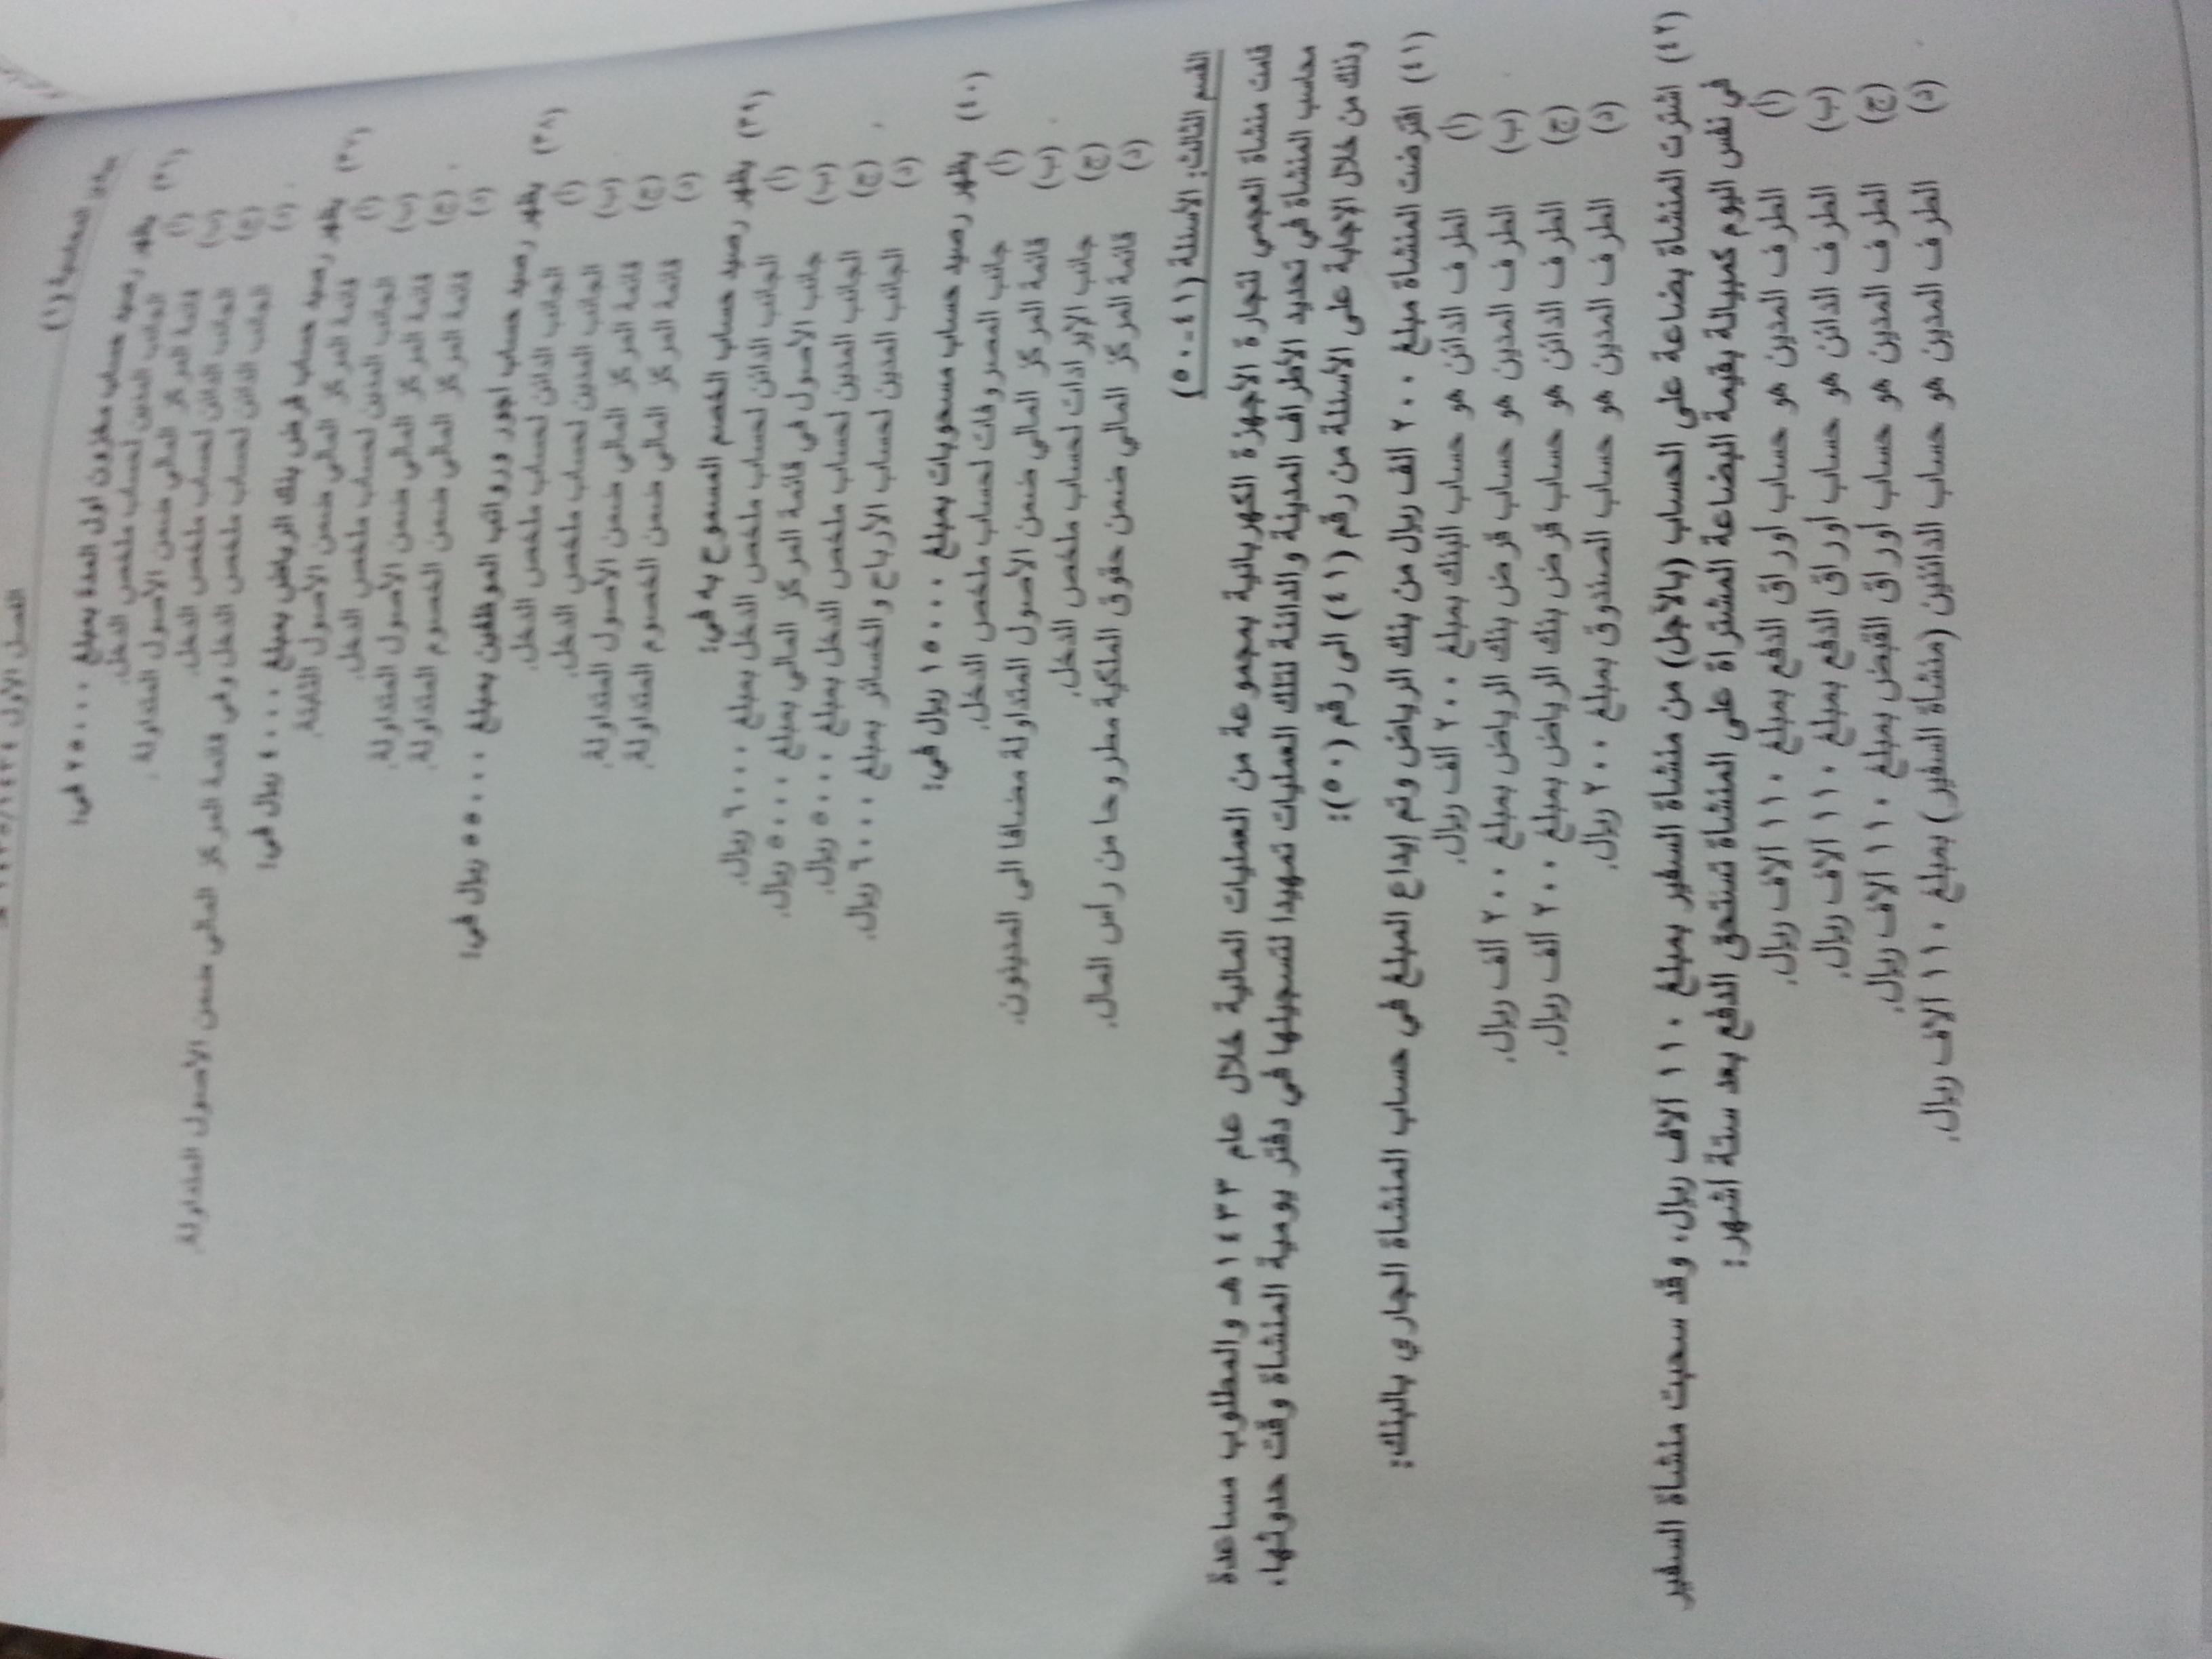 الفصل الأول ١٤٣٤/١٤٣٥هـ
المحاسبة (١)
(٣٦) يظهر رصيد حساب مخزون أول المدة بمبلغ ٢٥٠٠٠ في:
(أ) الجانب المدين لحساب ملخص الدخل.
(ب) قائمة المركز المالي ضمن الأصول المتداولة.
(ج) الجانب الدائن لحساب ملخص الدخل.
(د) الجانب الدائن لحساب ملخص الدخل وفي قائمة المركز المالي ضمن الأصول المتداولة.
(٣٧) يظهر رصيد حساب قرض بنك الرياض بمبلغ ٤٠٠٠ ريال في:
(أ) قائمة المركز المالي ضمن الأصول الثابتة.
(ب) الجانب المدين لحساب ملخص الدخل.
(ج) قائمة المركز المالي ضمن الأصول المتداولة.
(د) قائمة المركز المالي ضمن الخصوم المتداولة.
(٣٨) يظهر رصيد حساب أجور ورواتب الموظفين بمبلغ ٥٥٠٠٠ ريال في:
(أ) الجانب الدائن لحساب ملخص الدخل.
(ب) الجانب المدين لحساب ملخص الدخل.
(ج) قائمة المركز المالي ضمن الأصول المتداولة.
(د) قائمة المركز المالي ضمن الخصوم المتداولة.
(٣٩) يظهر رصيد حساب الخصم المسموح به في:
(أ) الجانب الدائن لحساب ملخص الدخل بمبلغ ٦٠٠٠ ريال.
(ب) جانب الأصول في قائمة المركز المالي بمبلغ ٥٠٠٠ ريال.
(ج) الجانب المدين لحساب ملخص الدخل بمبلغ ٥٠٠٠ ريال.
(د) الجانب المدين لحساب الأرباح والخسائر بمبلغ ٦٠٠٠ ريال.
(٤٠) يظهر رصيد حساب مسحوبات بمبلغ ١٥٠٠٠ ريال في:
(أ) جانب المصروفات لحساب ملخص الدخل.
(ب) قائمة المركز المالي ضمن الأصول المتداولة مضافا الى المدينون.
(ج) جانب الإيرادات لحساب ملخص الدخل.
(د) قائمة المركز المالي ضمن حقوق الملكية مطروحا من رأس المال.
القسم الثالث: الأسئلة (٤١-٥٠)
قامت منشأة العجمي لتجارة الأجهزة الكهربائية بمجموعة من العمليات المالية خلال عام ١٤٣٣هـ والمطلوب مساعدة
محاسب المنشأة في تحديد الأطراف المدينة والدائنة لتلك العمليات تمهيدا لتسجيلها في دفتر يومية المنشأة وقت حدوثها،
وذلك من خلال الإجابة على الأسئلة من رقم (٤١) الى رقم (٥٠):
(٤١) اقترضت المنشأة مبلغ ٢٠٠ ألف ريال من بنك الرياض وتم إيداع المبلغ في حساب المنشأة الجاري بالبنك:
(أ) الطرف الدائن هو حساب البنك بمبلغ ٢٠٠ ألف ريال.
(ب) الطرف المدين هو حساب قرض بنك الرياض بمبلغ ٢٠٠ ألف ريال.
(ج) الطرف الدائن هو حساب قرض بنك الرياض بمبلغ ٢٠٠ ألف ريال.
(د) الطرف المدين هو حساب الصندوق بمبلغ ٢٠٠ ريال.
(٤٢) اشترت المنشأة بضاعة على الحساب (بالأجل) من منشأة السفير بمبلغ ١١٠ آلاف ريال، وقد سحبت منشأة السفير
في نفس اليوم كمبيالة بقيمة البضاعة المشتراة على المنشأة تستحق الدفع بعد ستة أشهر:
(أ) الطرف المدين هو حساب أوراق الدفع بمبلغ ١١٠ آلاف ريال.
(ب) الطرف الدائن هو حساب أوراق الدفع بمبلغ ١١٠ آلاف ريال.
(ج) الطرف المدين هو حساب أوراق القبض بمبلغ ١١٠ آلاف ريال.
(د) الطرف المدين هو حساب الدائنين (منشأة السفير) بمبلغ ١١٠ آلاف ريال.